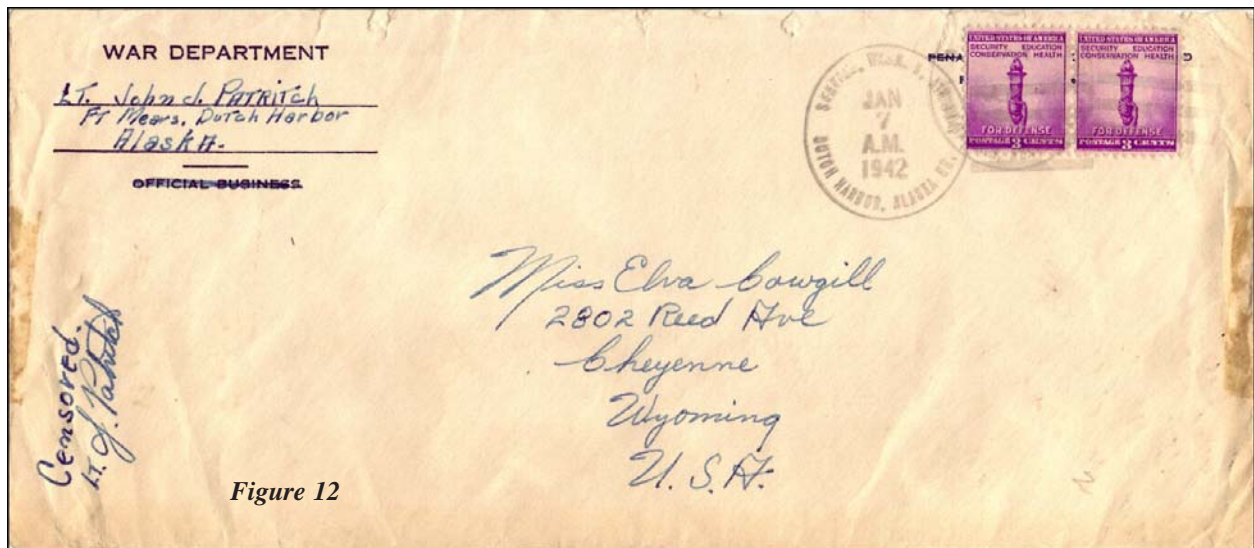 WAR DEPARTMENT
LT. John J. PATRITCH
FT Mears, Dutch Harbor
Alaska.
OFFICIAL BUSINESS
JAN
7
A.M.
1942
DUTCH HARBOR, ALASKA BR.
UNITED STATES OF AMERICA
SECURITY EDUCATION
CONSERVATION HEALTH
FOR DEFENSE
POSTAGE 3 CENTS
UNITED STATES OF AMERICA
SECURITY EDUCATION
CONSERVATION HEALTH
FOR DEFENSE
POSTAGE 3 CENTS
Miss Elva Cowgill
2802 Reed Ave
Cheyenne
Wyoming
U.S.A.
Censored.
LT. J. Patritch
Figure 12